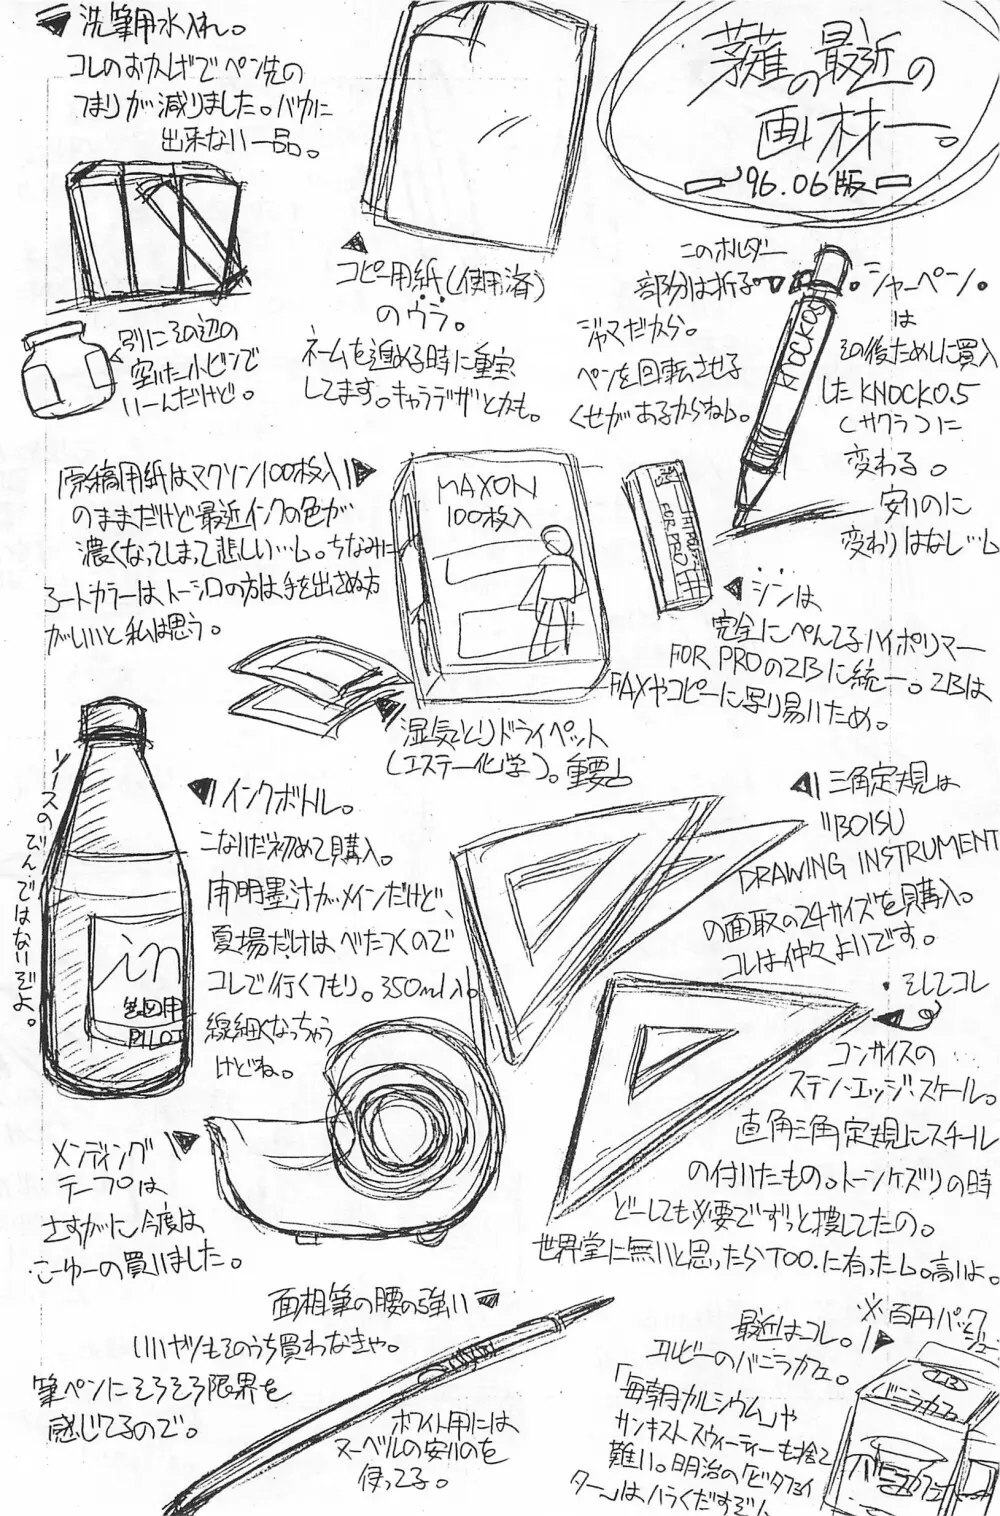 茅薙の最近の
画材一。
'96.06版
洗筆用水入れ。
コレのおかげでペン先の
つまりが減りました。バカに
出来ない一品。
別にその辺の
空いた小ビンで
いーんだけど。
コピー用紙(使用済)
のウラ。
ネームを進める時に重宝
してます。キャラデザとかも。
このホルダー
部分は折る。
ジャマだから。
ペンを回転させる
くせがあるからねム。
シャーペン。
は
その後ためしに買入
したKNOCK0.5
(サクラ)に
変わる。
安いのに
変わりはなし…ム
KNOCK05
原稿用紙はマクソン100枚入り
のままだけど最近インクの色が
濃くなってしまって悲しい…ム。ちなみに
ートカラーは、トーシロの方は手を出さぬ方
がいいと私は思う。
MAXON
100枚入
FOR PRO
ジンは
完全にぺんてるハイポリマー
FOR PROの2Bに統一。2Bは
FAXやコピーに写り易いため。
湿気とりドライペット
(エステー化学)。重要ム
ソースのびんではないぞよ。
in
製図用
PILOT
インクボトル。
こないだ初めて購入。
開明墨汁がメインだけど、
夏場だけはべたつくので
コレで行くつもり。350ml入り。
線細くなっちゃう
けどね。
三角定規は
"BOISU
DRAWING INSTRUMENT
の面取の24サイズを購入。
コレは仲々よいです。
・そしてコレ
コンサイスの
ステン・エッジ・スケール。
直角三角定規にスチール
の付いたもの。トーンケズリの時
どーしても必要でずっと捜してたの。
世界堂に無いと思ったらTOO.に有ったム。高いよ。
メンディング
テープは
さすがに今度は
こーゆーの買いました。
面相筆の腰の強い
いいヤツもそのうち買わなきゃ。
筆ペンにそろそろ限界を
感じてるので。
ホワイト用には
ヌーベルの安いのを
使ってる。
※百円パックジュー
最近はコレ。
エルビーのバニラカフェ。
「毎朝カルシウム」や
サンキストスウィーティーも捨て
難い。明治の「ビタファイ
ター」はハラくだすぞム
LB
バニラカフェ
バニラカフェ